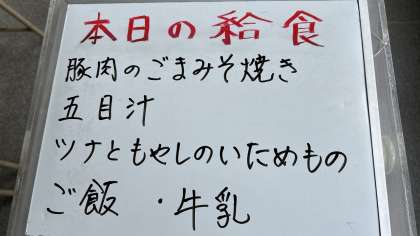 本日の給食
豚肉のごまみそ焼き
五目汁
ツナともやしのいためもの
ご飯・牛乳